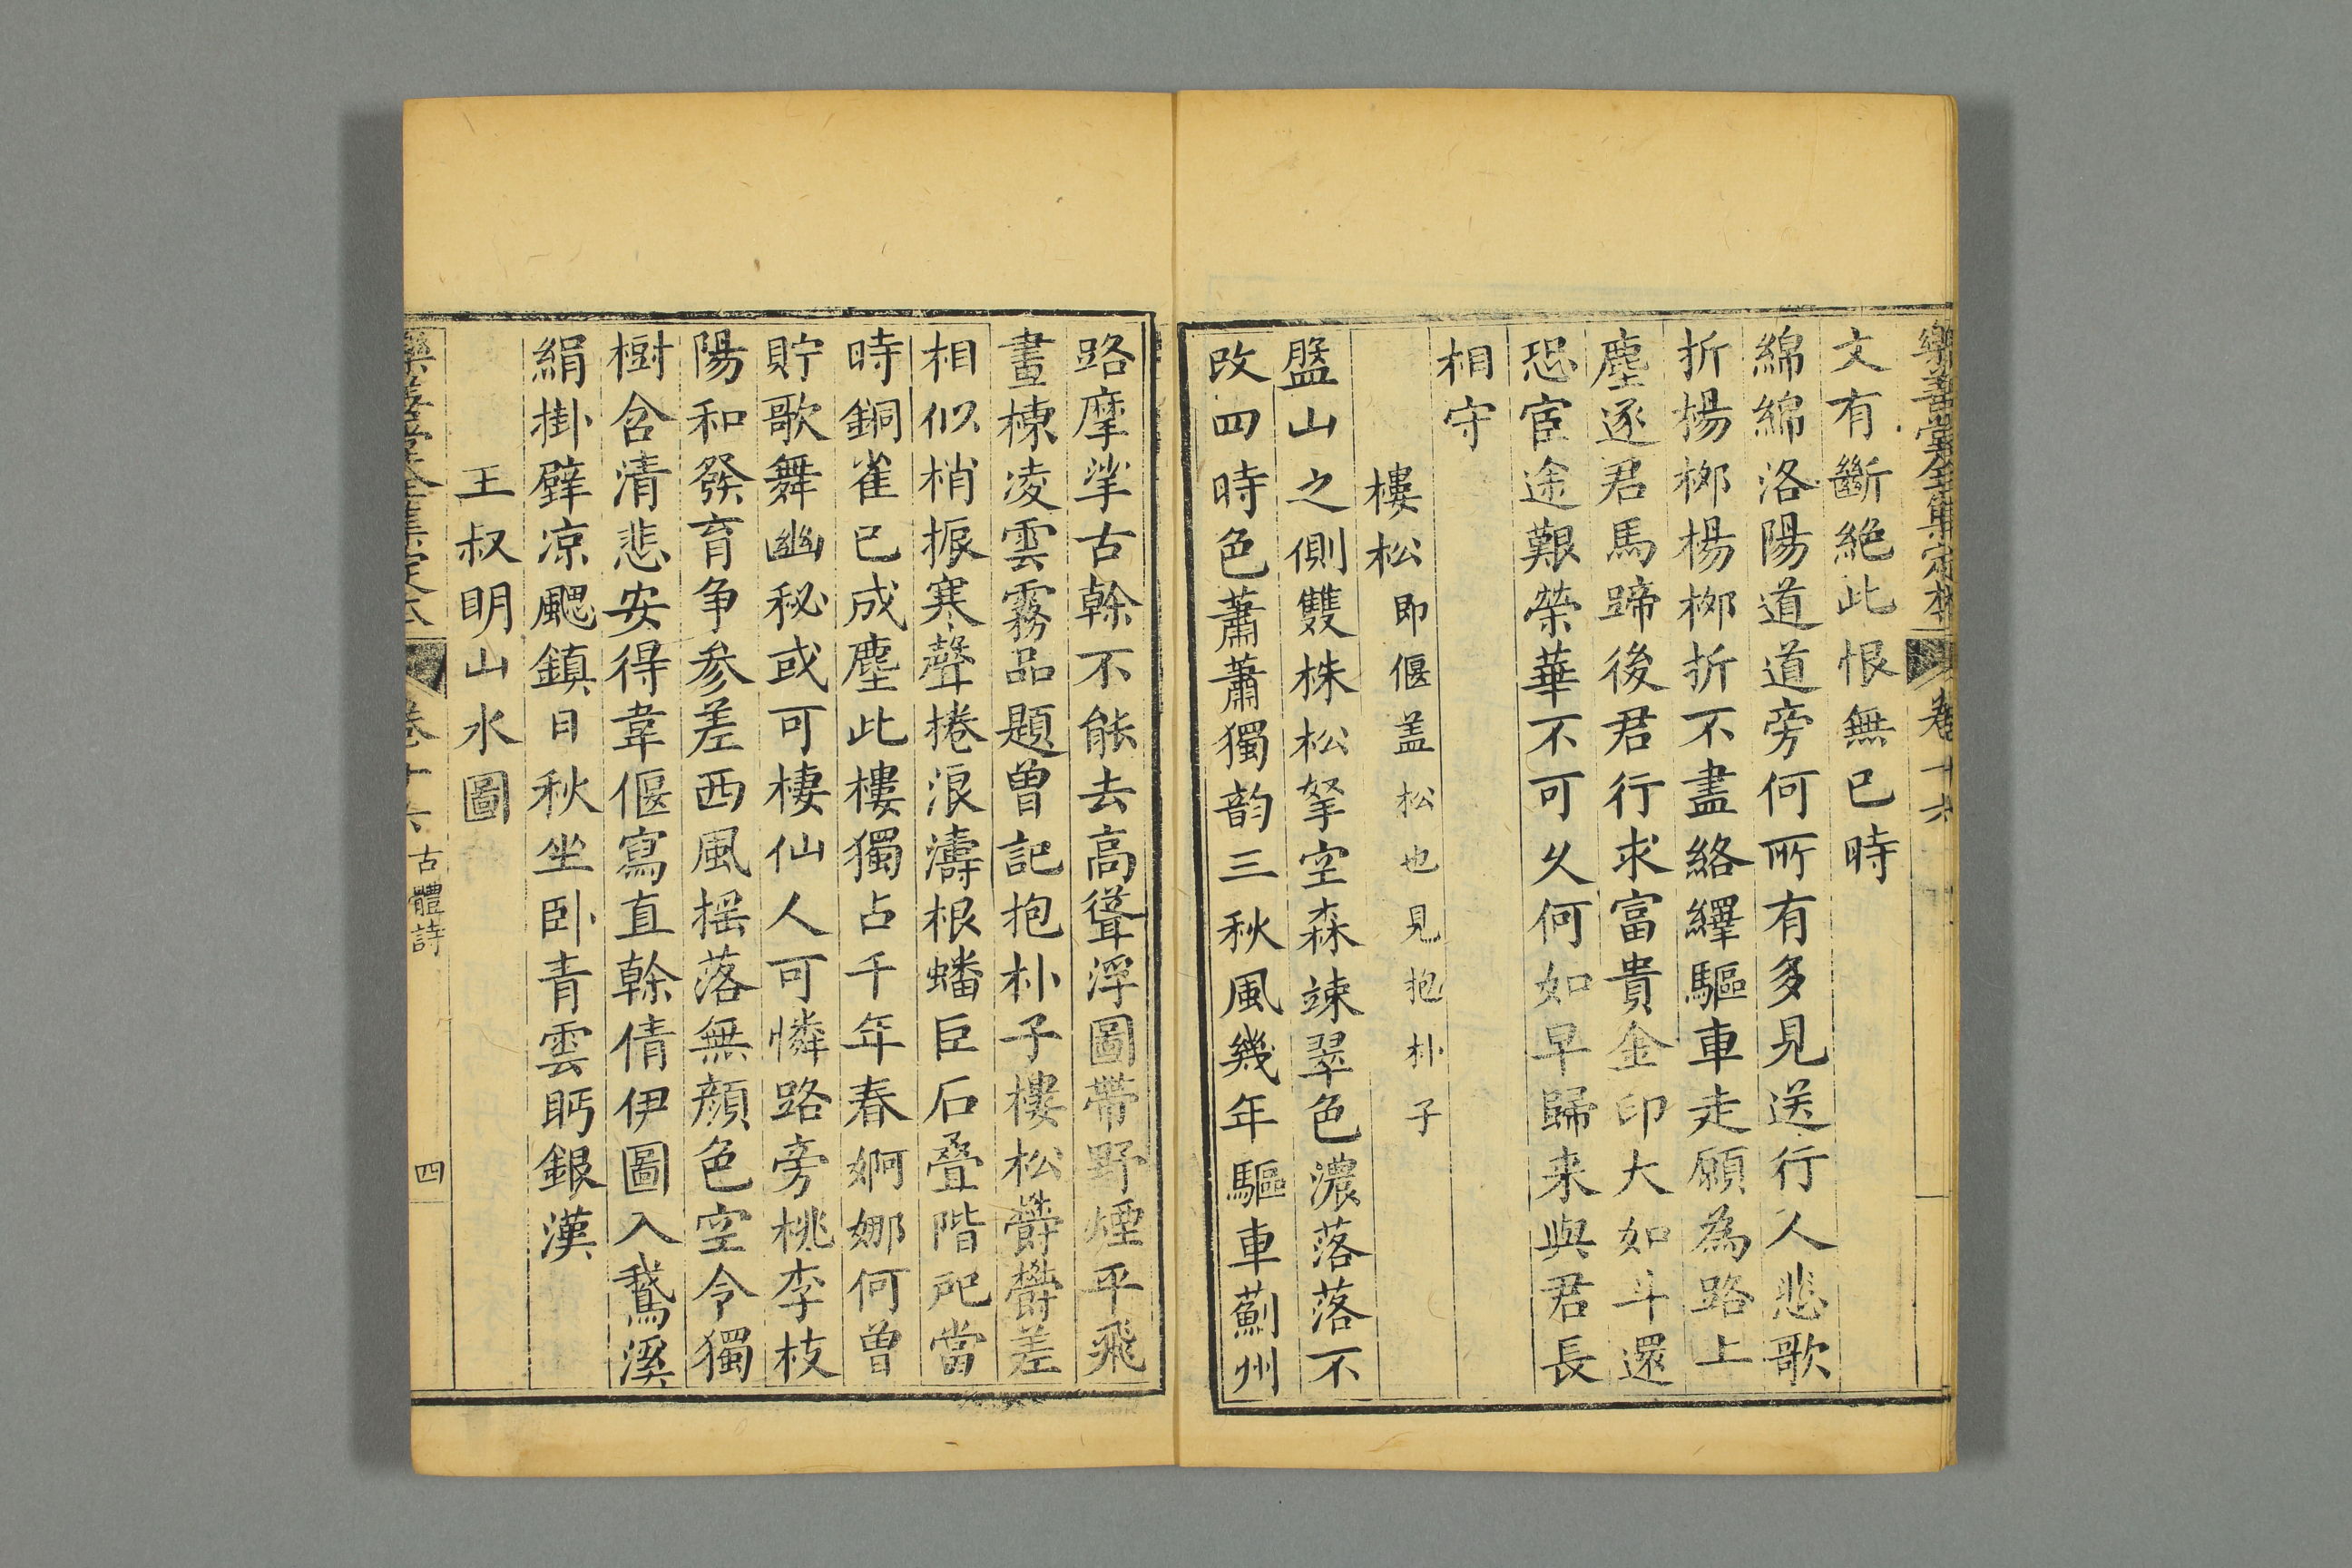 樂善堂全集定本 卷十六
文有斷絶此恨無已時
綿綿洛陽道道旁何所有多見送行人悲歌
折楊栁楊栁折不盡絡繹驅車走願為路上
塵逐君馬蹄後君行求富貴金印大如斗還
恐宦途艱榮華不可久何如早歸来與君長
相守
樓松即偃盖松也見抱朴子
盤山之側雙株松拏空森竦翠色濃落落不
改四時色蕭蕭獨韵三秋風幾年驅車薊州
路摩挲古幹不能去高聳浮圖帶野煙平飛
畫棟凌雲霧品題曽記抱朴子樓松欝欝差
相似梢振寒聲捲浪濤根蟠巨石疊階戺當
時銅雀已成塵此樓獨占千年春婀娜何曽
貯歌舞幽秘或可棲仙人可憐路旁桃李枝
陽和發育争参差西風摇落無顔色空令獨
樹含清悲安得韋偃寫直幹倩伊圖入鵞溪
絹掛壁凉颸鎮日秋坐卧青雲眄銀漢
王叔明山水圖
樂善堂全集定本 卷十六 古體詩 四